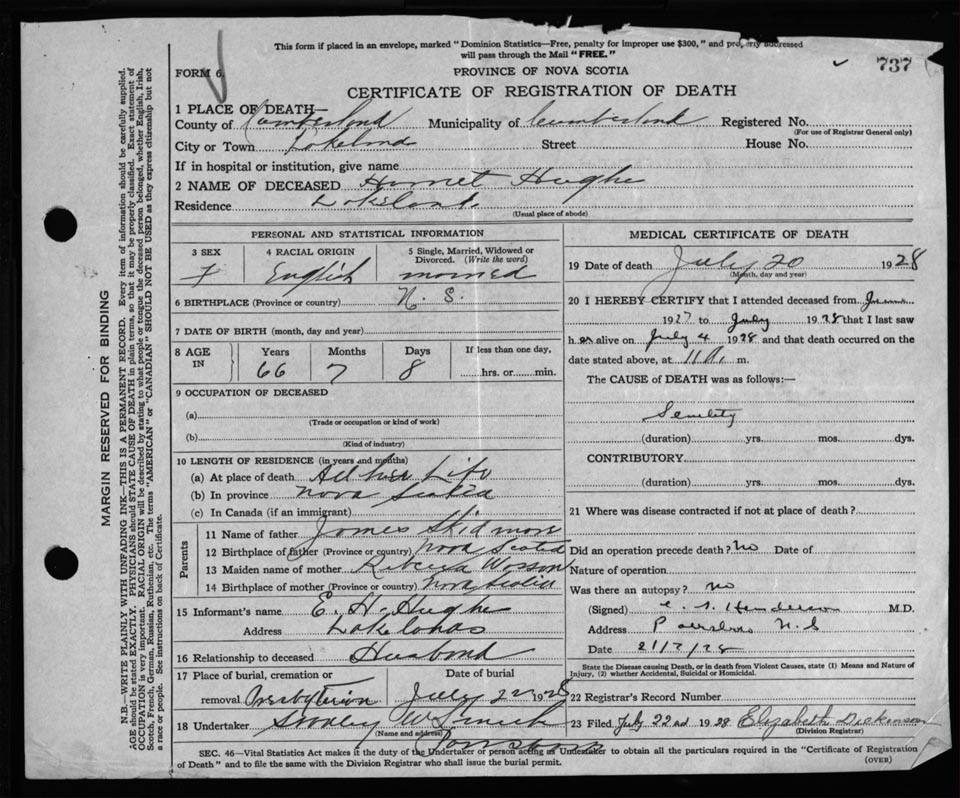 This form if placed in an envelope, marked "Dominion Statistics—Free, penalty for improper use $300," and properly addressed
will pass through the Mail "FREE."
737
FORM 6.
PROVINCE OF NOVA SCOTIA
CERTIFICATE OF REGISTRATION OF DEATH
1 PLACE OF DEATH—
County of Cumberland Municipality of Cumberland Registered No.
(For use of Registrar General only)
City or Town Lakelands Street House No.
If in hospital or institution, give name
2 NAME OF DECEASED Harriet Hughe
Residence Lakelands
(Usual place of abode)
PERSONAL AND STATISTICAL INFORMATION
3 SEX 4 RACIAL ORIGIN 5 Single, Married, Widowed or
Divorced. (Write the word)
F English married
6 BIRTHPLACE (Province or country) N. S.
7 DATE OF BIRTH (month, day and year)
8 AGE IN Years Months Days If less than one day,
66 7 8 hrs. or min.
9 OCCUPATION OF DECEASED
(a)
(Trade or occupation or kind of work)
(b)
(Kind of industry)
10 LENGTH OF RESIDENCE (in years and months)
(a) At place of death All her Life
(b) In province Nova Scotia
(c) In Canada (if an immigrant)
Parents
11 Name of father James Skidmore
12 Birthplace of father (Province or country) Nova Scotia
13 Maiden name of mother Rebecca Wasson
14 Birthplace of mother (Province or country) Nova Scotia
15 Informant's name E. H. Hughe
Address Lakelands
16 Relationship to deceased Husband
17 Place of burial, cremation or Date of burial
removal Presbyterian July 22 1928
18 Undertaker Smith
(Name and address)
MEDICAL CERTIFICATE OF DEATH
19 Date of death July 20 1928
(Month, day and year)
20 I HEREBY CERTIFY that I attended deceased from
1927 to July 1928 that I last saw
her alive on July 4 1928 and that death occurred on the
date stated above, at 11 m.
The CAUSE of DEATH was as follows:—
Senility
(duration) yrs. mos. dys.
CONTRIBUTORY
(duration) yrs. mos. dys.
21 Where was disease contracted if not at place of death?
Did an operation precede death? No Date of
Nature of operation
Was there an autopsy? no
(Signed) Henderson M.D.
Address Parrsboro N.S
Date 21/7/28
State the Disease causing Death, or in death from Violent Causes, state (1) Means and Nature of
Injury, (2) whether Accidental, Suicidal or Homicidal.
22 Registrar's Record Number
23 Filed July 22nd 1928 Elizabeth Dickinson
(Division Registrar)
SEC. 46—Vital Statistics Act makes it the duty of the Undertaker or person acting as Undertaker to obtain all the particulars required in the "Certificate of Registration
of Death" and to file the same with the Division Registrar who shall issue the burial permit.
(OVER)
MARGIN RESERVED FOR BINDING
N.B.—WRITE PLAINLY WITH UNFADING INK—THIS IS A PERMANENT RECORD. Every item of information should be carefully supplied.
AGE should be stated EXACTLY. PHYSICIANS should STATE CAUSE OF DEATH in plain terms, so that it may be properly classified. Exact statement of
OCCUPATION is very important. RACIAL ORIGIN will be described by stating to what people or tongue the deceased person belonged, whether English, Irish,
Scotch, French, German, Russian, Ruthenian, etc. The terms "AMERICAN" or "CANADIAN" SHOULD NOT BE USED as they express citizenship but not
a race or people. See instructions on back of Certificate.